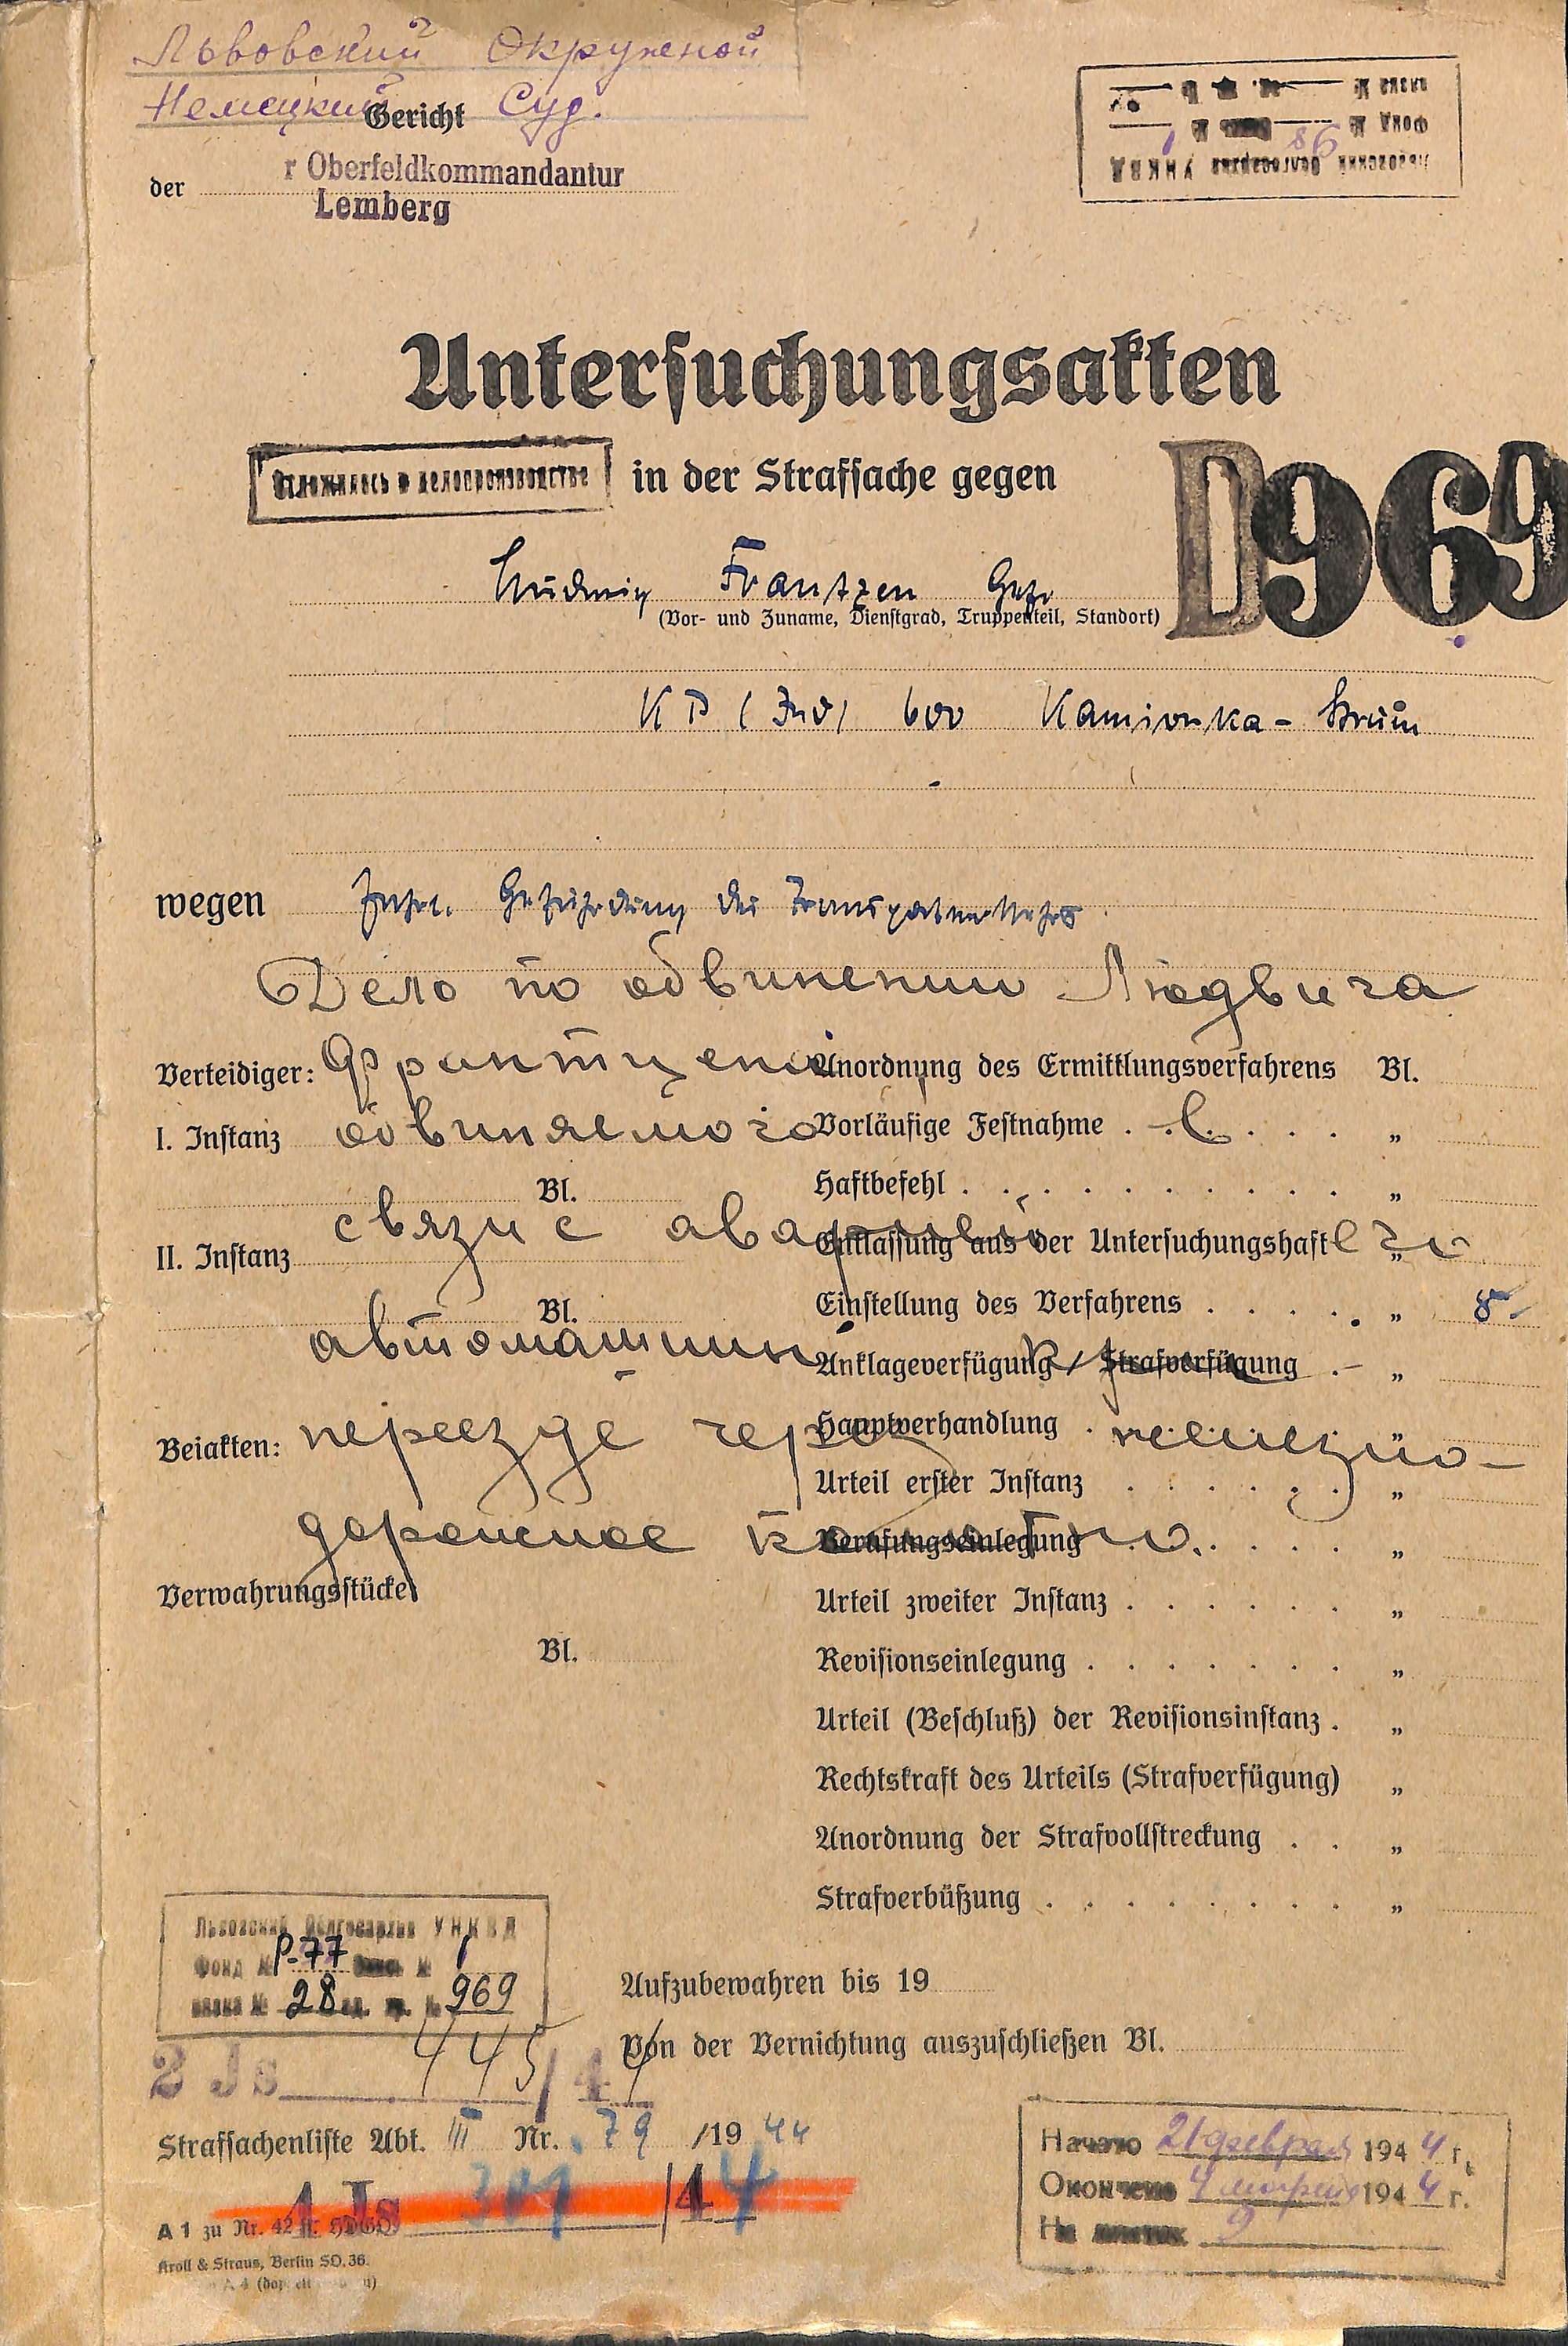 Львовский Окружной
Немецкий Суд.
Gericht
der r Oberfeldkommandantur
Lemberg
Львовский Облгосархив УНКВД
Фонд №
98 1
Untersuchungsakten
Отложилось в делопроизводстве
in der Strafsache gegen
D969
Ludwig Frantzen Gefr
(Vor- und Zuname, Dienstgrad, Truppenteil, Standort)
600 Kamionka-Strum
wegen Fahrl. Gefährdung des Transportverkehrs
Дело по обвинении Людвига
Франтцена
обвиняемого в
связи с аварией его
автомашины при
переезде через железно-
дорожное полотно.
Verteidiger:
I. Instanz
Bl.
II. Instanz
Bl.
Beiakten:
Verwahrungsstücke
Bl.
Anordnung des Ermittlungsverfahrens Bl.
Vorläufige Festnahme . . . . . . "
Haftbefehl . . . . . . . . . . "
Entlassung aus der Untersuchungshaft "
Einstellung des Verfahrens . . . . . " 8
Anklageverfügung / Strafverfügung . "
Hauptverhandlung . . . . . . . "
Urteil erster Instanz . . . . . . "
Berufungseinlegung . . . . . . "
Urteil zweiter Instanz . . . . . . "
Revisionseinlegung . . . . . . . "
Urteil (Beschluß) der Revisionsinstanz . "
Rechtskraft des Urteils (Strafverfügung) "
Anordnung der Strafvollstreckung . . "
Strafverbüßung . . . . . . . . "
Львовский Облгосархив УНКВД
Фонд № Р-77 Опись № 1
связка № 28 ед. хр. № 969
Aufzubewahren bis 19
Von der Vernichtung auszuschließen Bl.
2 Js 445/44
Strafsachenliste Abt. III Nr. 79 /1944
1 Js /44
A 1 zu Nr. 42
Kroll & Straus, Berlin SO. 36.
Начато 21 февраля 1944 г.
Окончено 4 марта 1944 г.
На листах 9